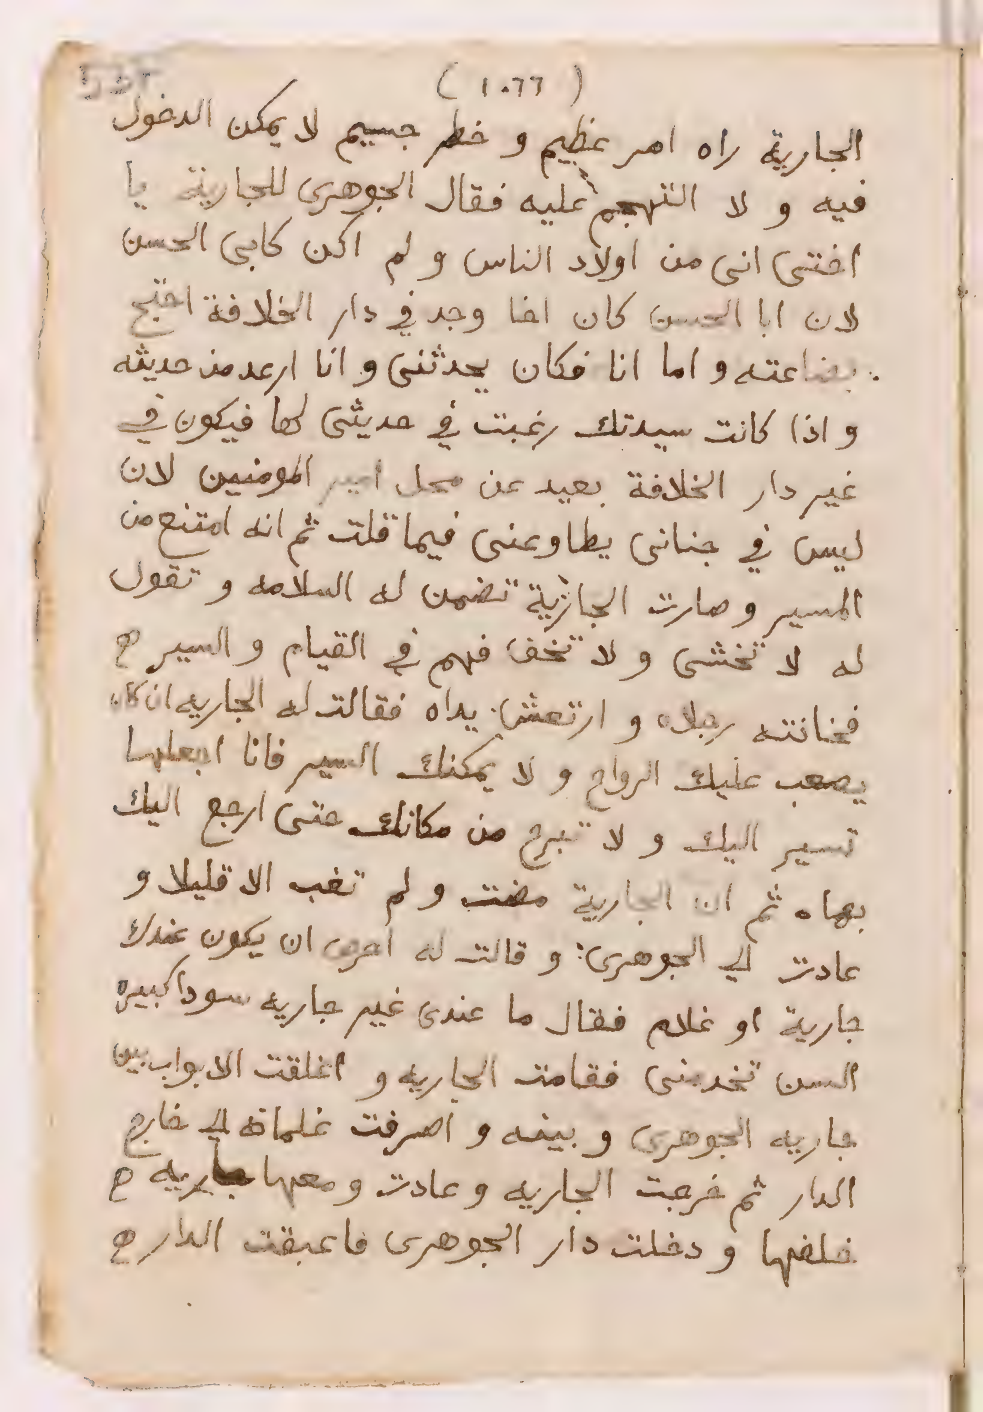 ( ١٠٦٦ )
الجارية راه امر عظيم و خطر جسيم لا يمكن الدخول
فيه و لا التهجم عليه فقال الجوهرى للجارية يا
اختى انى من اولاد الناس و لم اكن كابى الحسن
لان ابا الحسن كان اخا وجد في دار الخلافة احتج
بضاعته و اما انا فكان يحدثنى و انا ارعد من حديثه
و اذا كانت سيدتك رغبت في حديثى لها فيكون في
غير دار الخلافة بعيد عن محل امير المومنين لان
ليس في جنانى يطاوعنى فيما قلت ثم انه امتنع من
المسير وصارت الجارية تضمن له السلامه و تقول
له لا تخشى و لا تخف فهم في القيام و السير
فخانته رجلاه و ارتعش يداه فقالت له الجاريه ان كان
يصعب عليك الرواح و لا يمكنك السير فانا اجعلها
تسير اليك و لا تبرح من مكانك حتى ارجع اليك
بها ثم ان الجارية مضت و لم تغب الا قليلا و
عادت الي الجوهرى و قالت له احرص ان يكون عندك
جارية او غلام فقال ما عندى غير جاريه سودا كبيره
السن تخدمنى فقامت الجاريه و اغلقت الابواب بين
جاريه الجوهرى و بينه و اصرفت غلمانه الي خارج
الدار ثم خرجت الجاريه و عادت و معها جاريه
خلفها و دخلت دار الجوهرى فاعبقت الدار